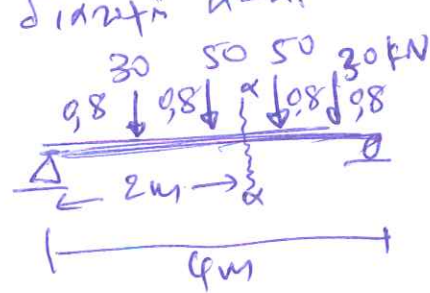 30 50 50 30 kN
0,8 0,8 α 0,8 0,8
2m
α
4m